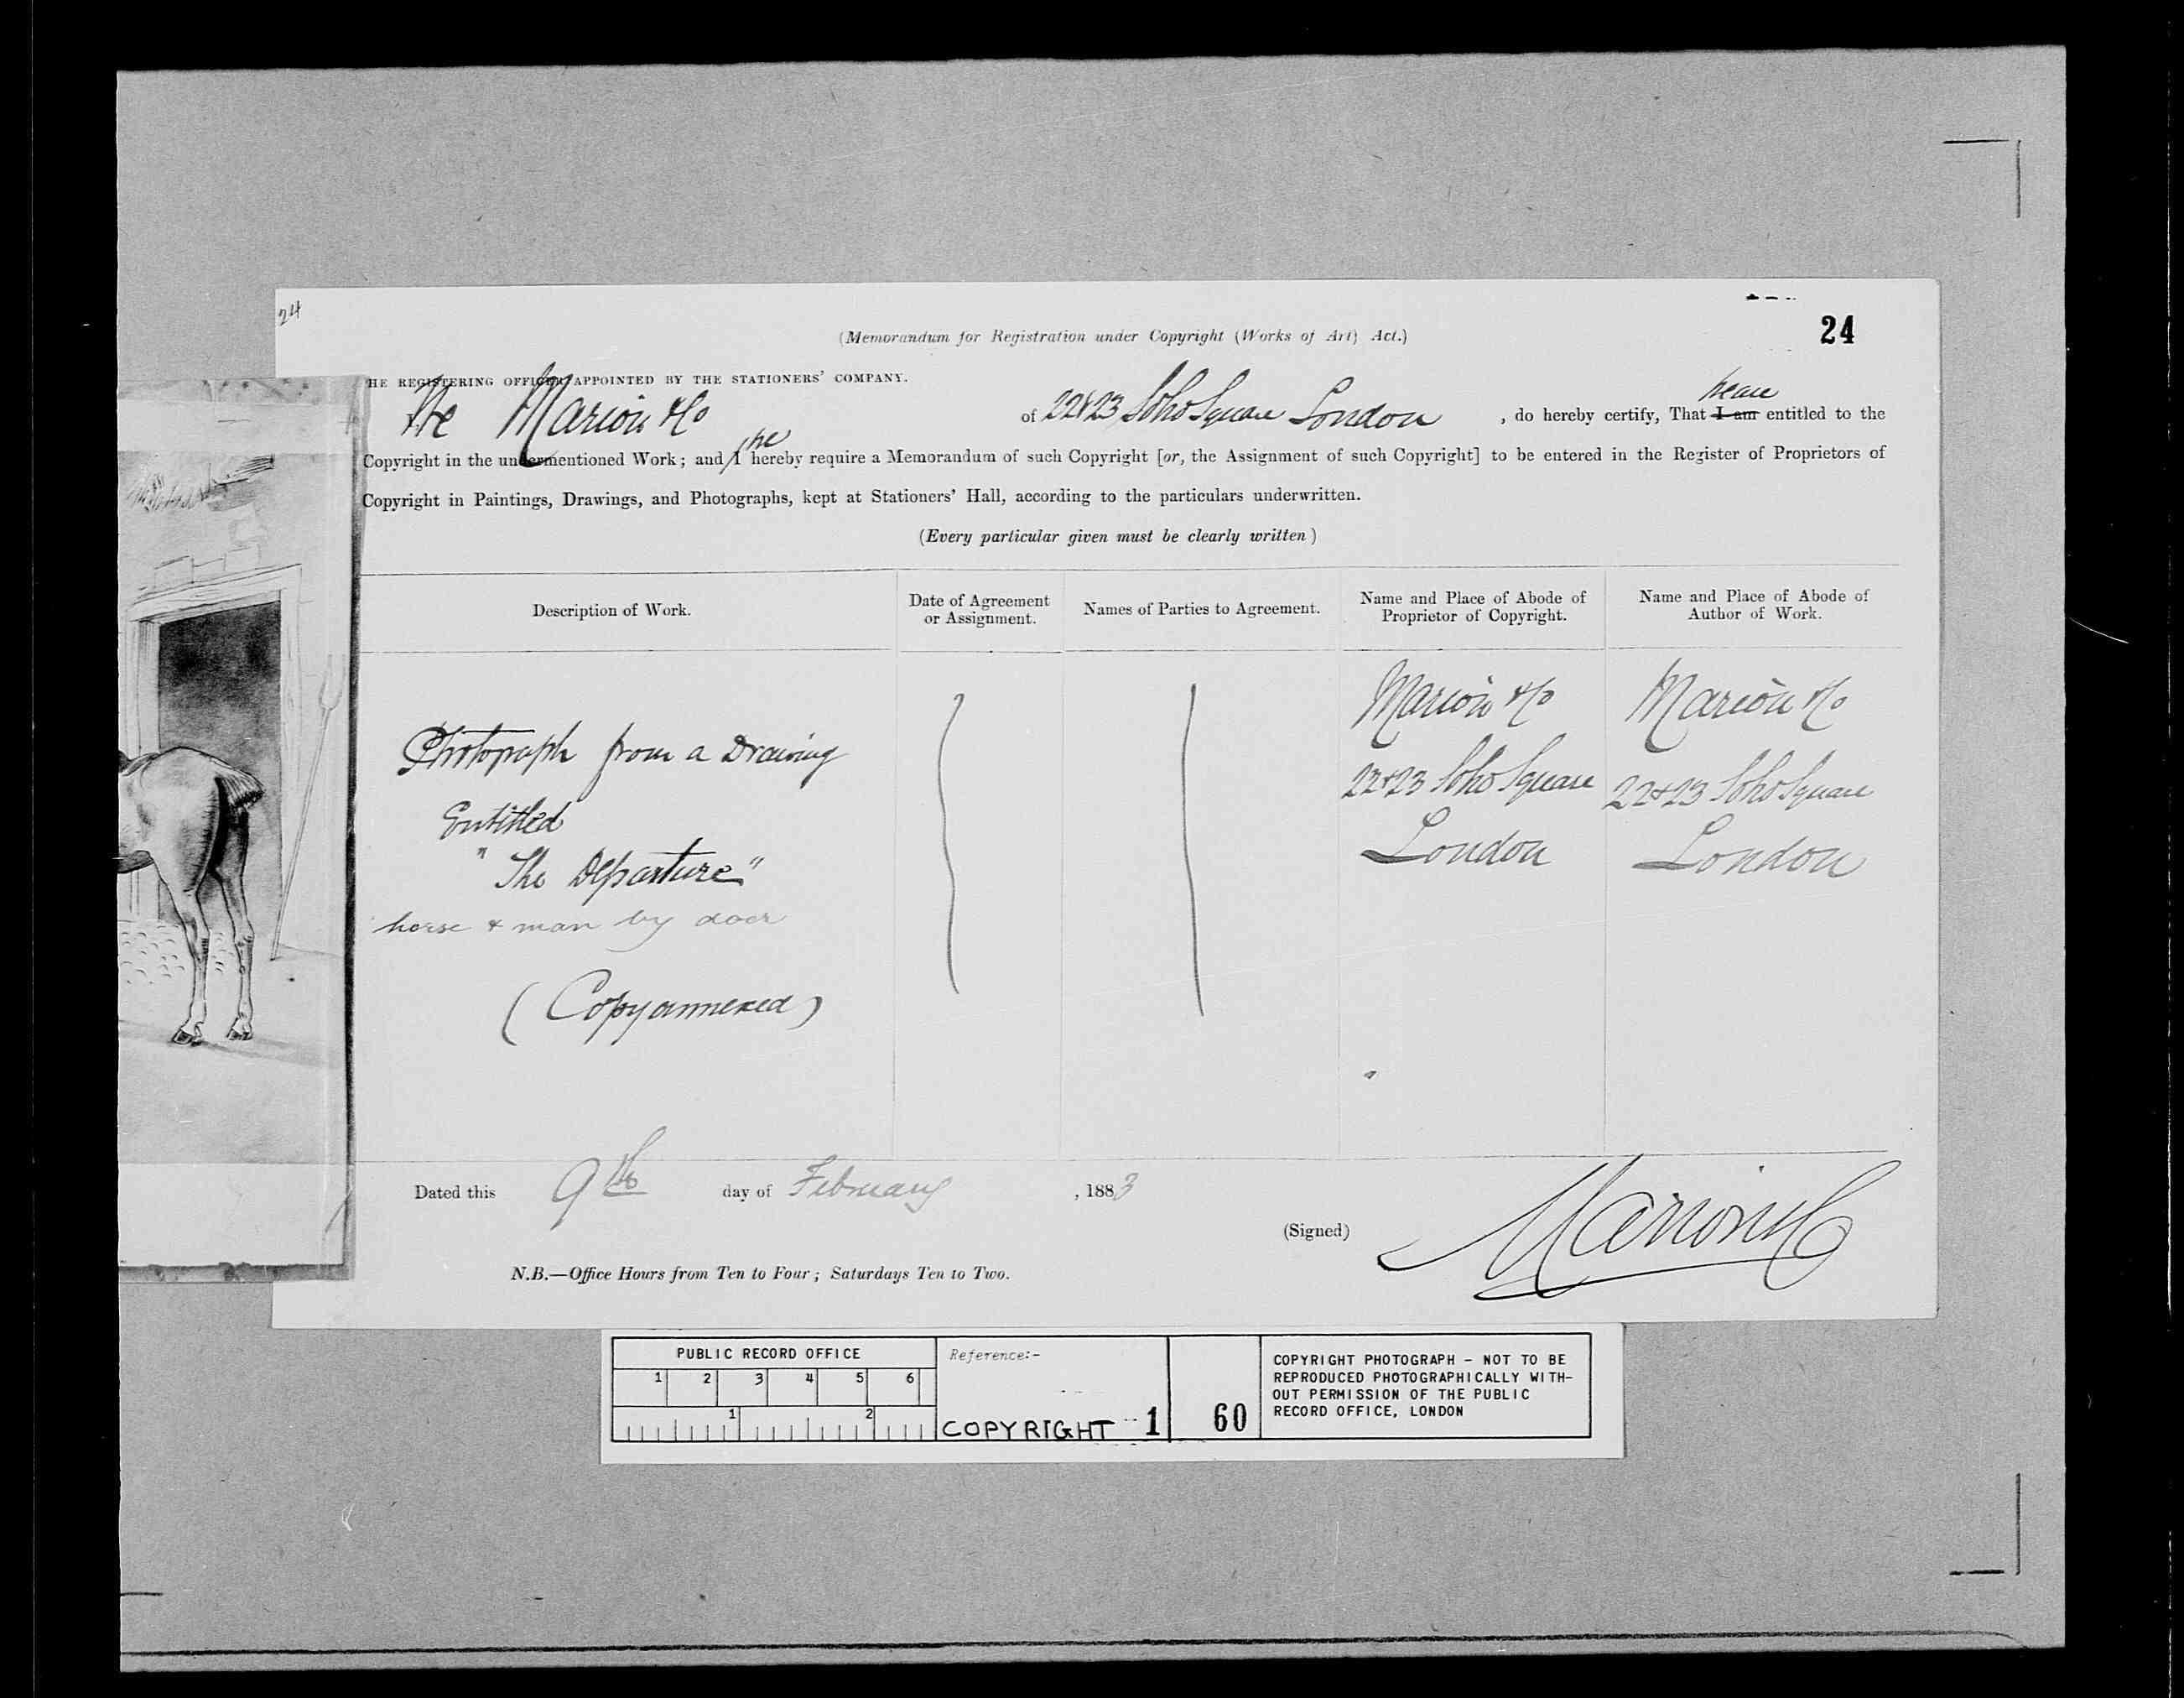 24
24
(Memorandum for Registration under Copyright (Works of Art) Act.)
HE REGISTERING OFFICER APPOINTED BY THE STATIONERS' COMPANY.
We Marion & Co of 22 & 23 Soho Square London, do hereby certify, That I am we are entitled to the
Copyright in the undermentioned Work; and I we hereby require a Memorandum of such Copyright [or, the Assignment of such Copyright] to be entered in the Register of Proprietors of
Copyright in Paintings, Drawings, and Photographs, kept at Stationers' Hall, according to the particulars underwritten.
(Every particular given must be clearly written)
Description of Work.
Date of Agreement
or Assignment.
Names of Parties to Agreement.
Name and Place of Abode of
Proprietor of Copyright.
Name and Place of Abode of
Author of Work.
Photograph from a Drawing
Entitled
"The Departure"
horse & man by door
(Copy annexed)
Marion & Co
22 & 23 Soho Square
London
Marion & Co
22 & 23 Soho Square
London
Dated this 9th day of February, 1883
(Signed) Marion & Co
N.B.—Office Hours from Ten to Four; Saturdays Ten to Two.
PUBLIC RECORD OFFICE
1 2 3 4 5 6
1 2
Reference:-
COPYRIGHT 1 60
COPYRIGHT PHOTOGRAPH - NOT TO BE
REPRODUCED PHOTOGRAPHICALLY WITH-
OUT PERMISSION OF THE PUBLIC
RECORD OFFICE, LONDON